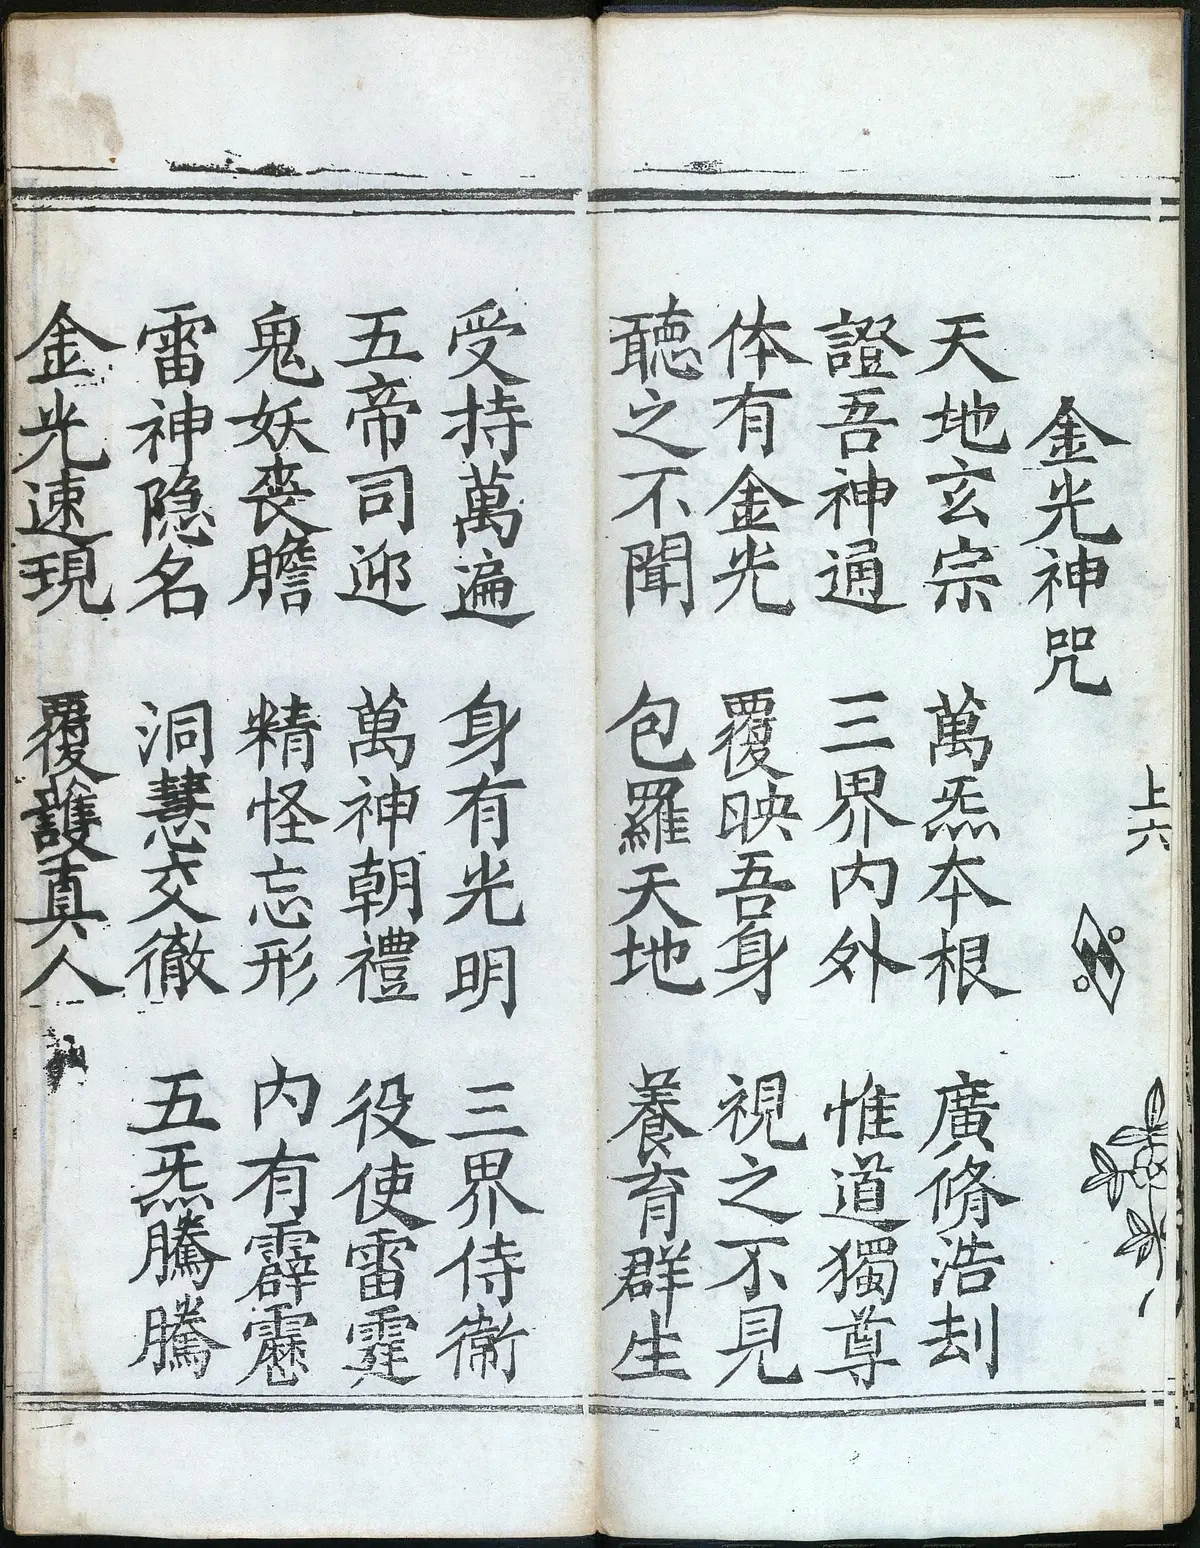 金光神咒
上六
天地玄宗 萬炁本根 廣脩浩刦
證吾神通 三界內外 惟道獨尊
体有金光 覆映吾身 視之不見
聽之不聞 包羅天地 養育群生
受持萬遍 身有光明 三界侍衛
五帝司迎 萬神朝禮 役使雷霆
鬼妖喪膽 精怪忘形 內有霹靂
雷神隐名 洞慧交徹 五炁騰騰
金光速現 覆護真人